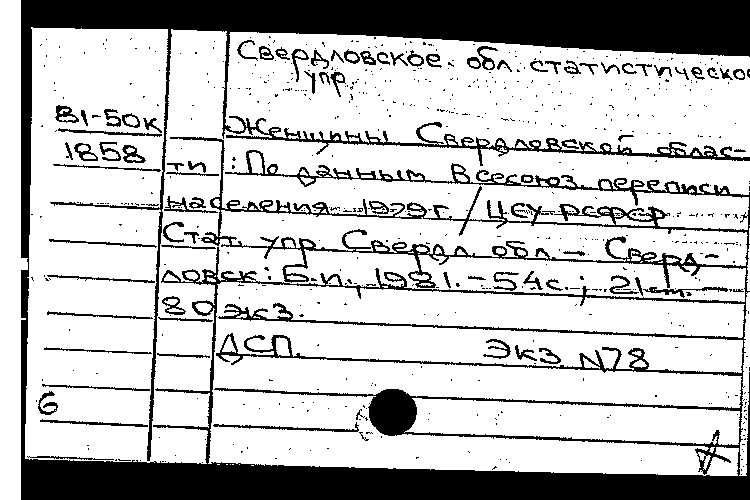 Свердловское обл. статистическо
упр.
В1-50к
1858
Женщины Свердловской облас-
ти : По данным Всесоюз. переписи
населения 1979 г. / ЦСУ РСФСР,
Стат. упр. Свердл. обл. – Сверд-
ловск: Б.и., 1981. – 54с.; 21см. –
80 экз.
ДСП. Экз. N78
6